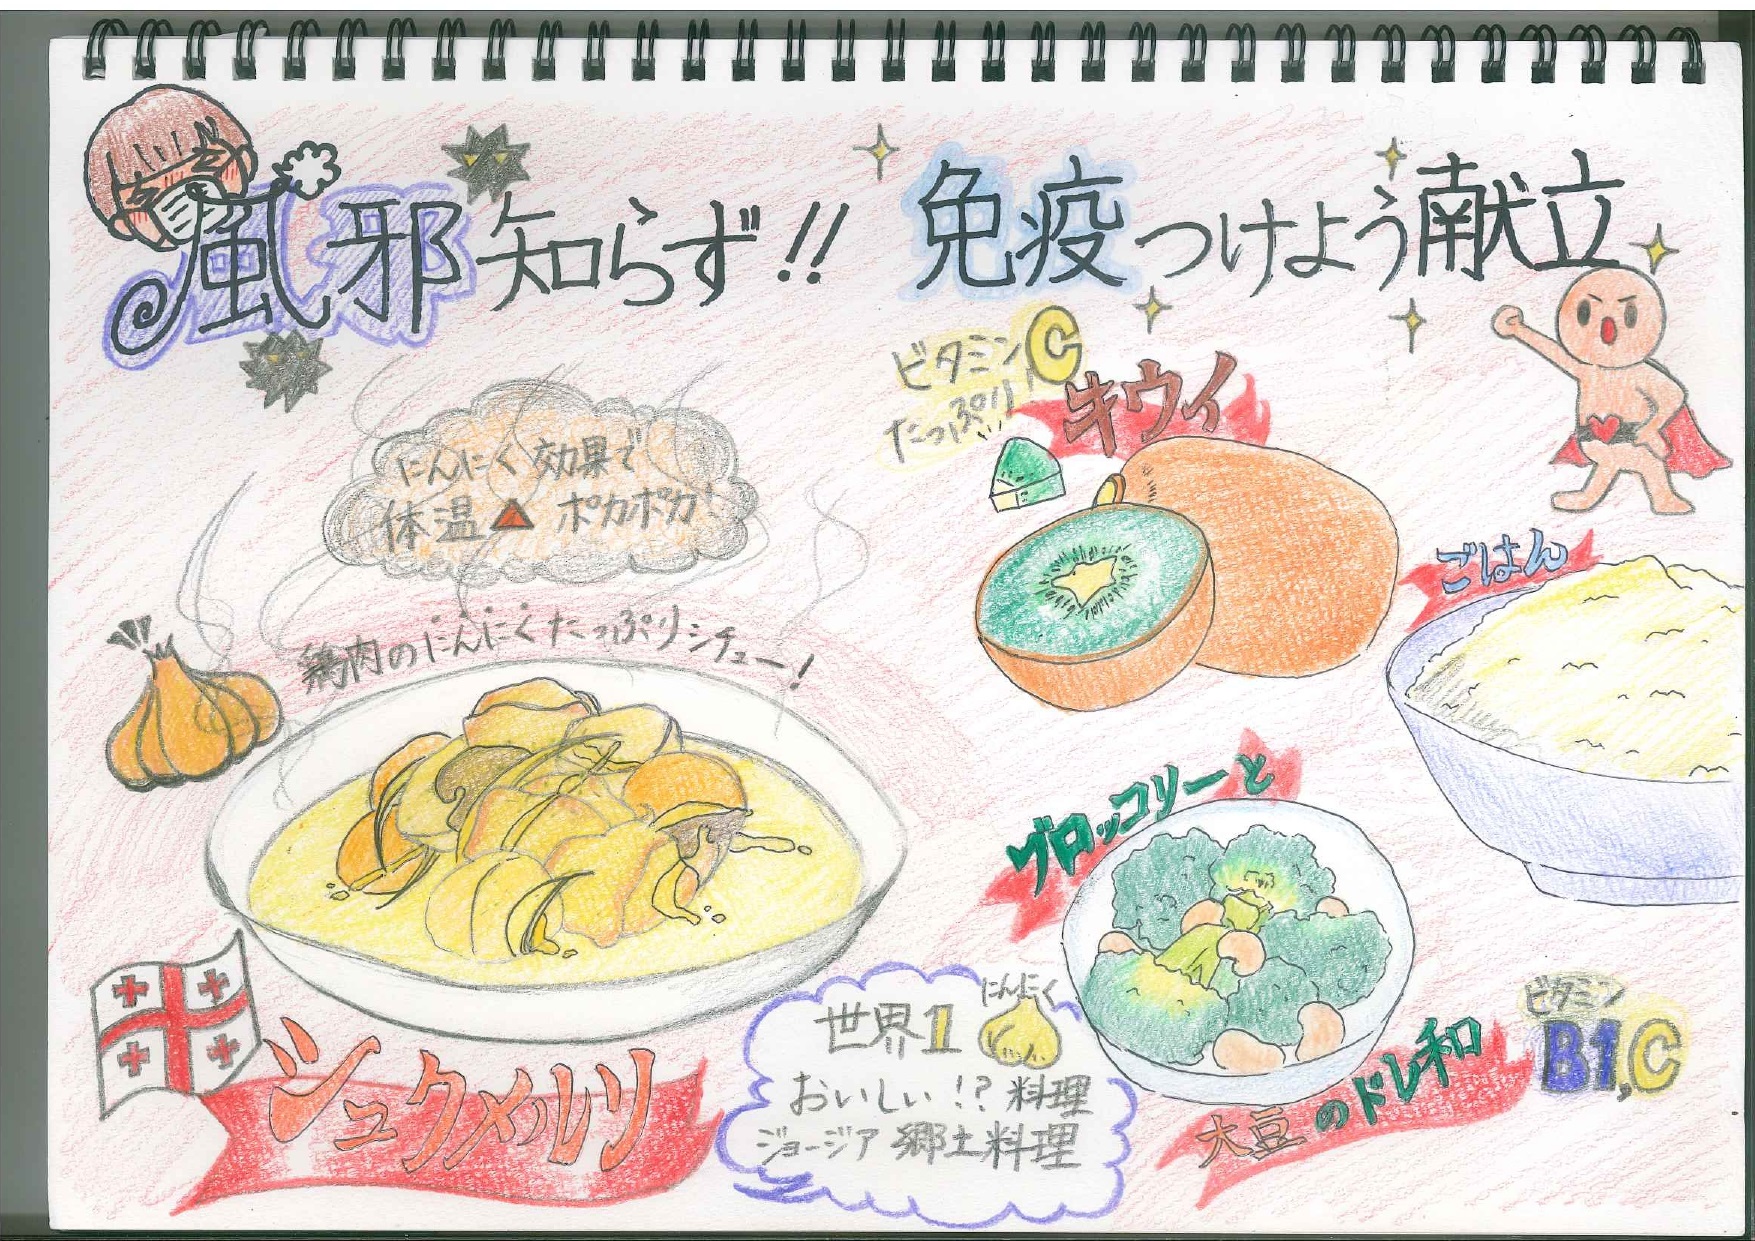 風邪知らず!! 免疫つけよう献立
ビタミンC
たっぷり!
キウイ
にんにく効果で
体温▲ポカポカ!
ごはん
鶏肉のにんにくたっぷりシチュー!
ブロッコリーと
大豆のドレ和
ビタミン
B1,C
シュクメルリ
にんにく
世界1
おいしい!?料理
ジョージア郷土料理